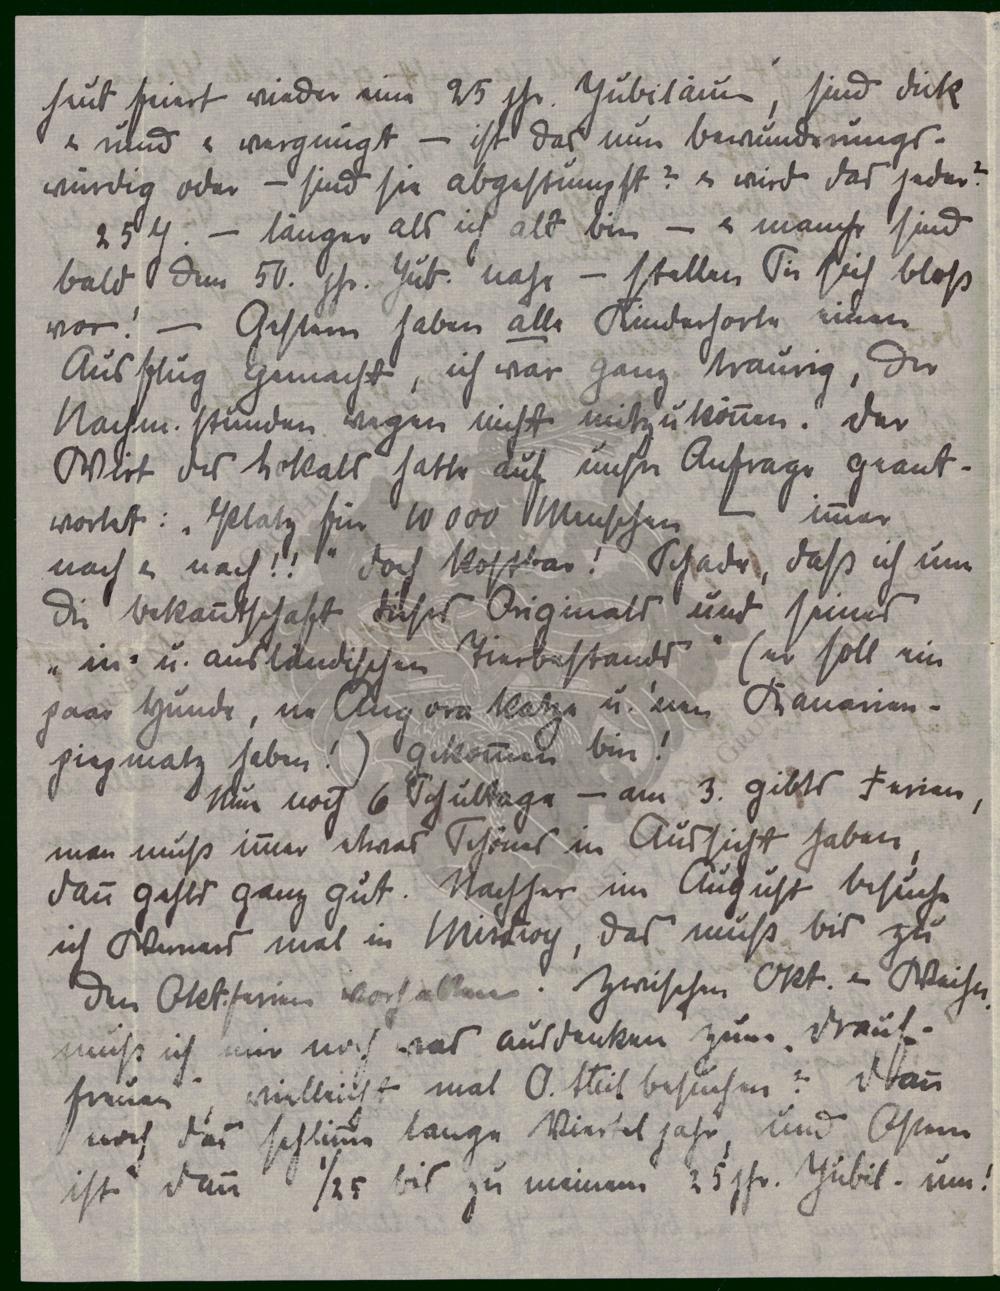 heut feiert wieder eine 25 jhr. Jubiläum, sind dick
& rund & vergnügt — ist das nun bewunderungs-
würdig oder — sind sie abgestumpft? & wird das jeder?
25 J. — länger als ich alt bin — & manche sind
bald dem 50. jhr. Jub. nahe — stellen Sie sich bloß
vor! — Gestern haben alle Kinderhorte einen
Ausflug gemacht, ich war ganz traurig, der
Nachm. stunden wegen nicht mitzukom̄en. Der
Wirt des Lokals hatte auf unsre Anfrage geant-
wortet: „Platz für 10 000 Menschen — im̄er
nach & nach!!“ doch kostbar! Schade, daß ich um
die bekan̄tschaft dieses Originals und seines
„in= u. ausländischen Tierbestands“ (er soll ein
paar Hunde, ne Angora Katze u. 'nen Kanarien-
piepmatz haben!) gekom̄en bin!
Nur noch 6 Schultage — am 3. gibts Ferien,
man muß im̄er etwas Schönes in Aussicht haben,
dan̄ gehts ganz gut. Nachher im August besuche
ich Werners mal in Misdroy, das muß bis zu
den Okt.ferien vorhalten. Zwischen Okt. & Weihn.
muß ich mir noch was ausdenken zum „drauf-
freuen“, vielleicht mal O. besuchen? dan̄
noch das schlim̄e lange Vierteljahr, und Ostern
ist dan̄ 1/25 bis zu meinem 25 jhr. Jubil. um!